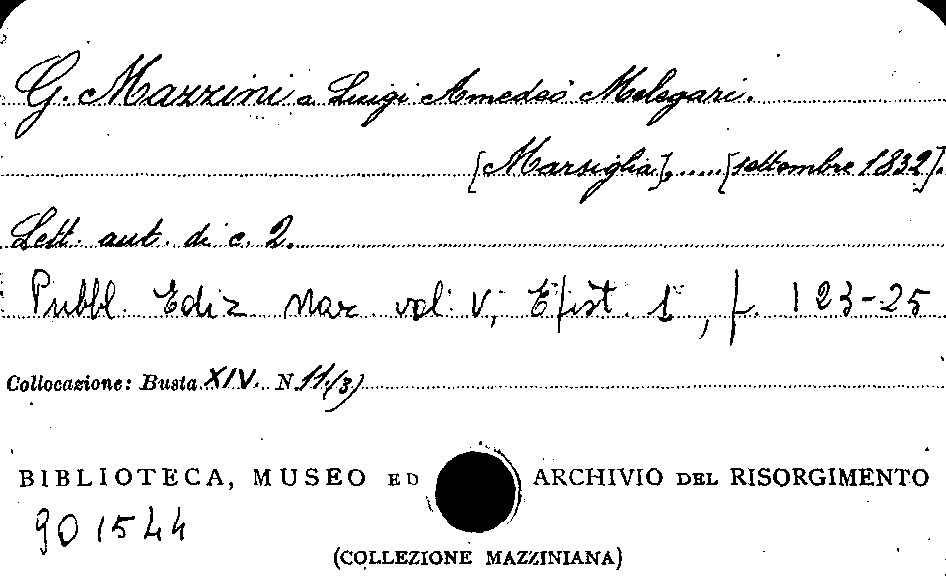 G. Mazzini a Luigi Amedeo Melegari.
[Marsiglia],.....[settembre 1832].
Lett. aut. di c. 2.
Pubbl. Ediz. Naz. vol. V, Epist. 1, p. 123-25
Collocazione: Busta XIV. N 11.(3)
BIBLIOTECA, MUSEO ED ARCHIVIO DEL RISORGIMENTO
901544
(COLLEZIONE MAZZINIANA)